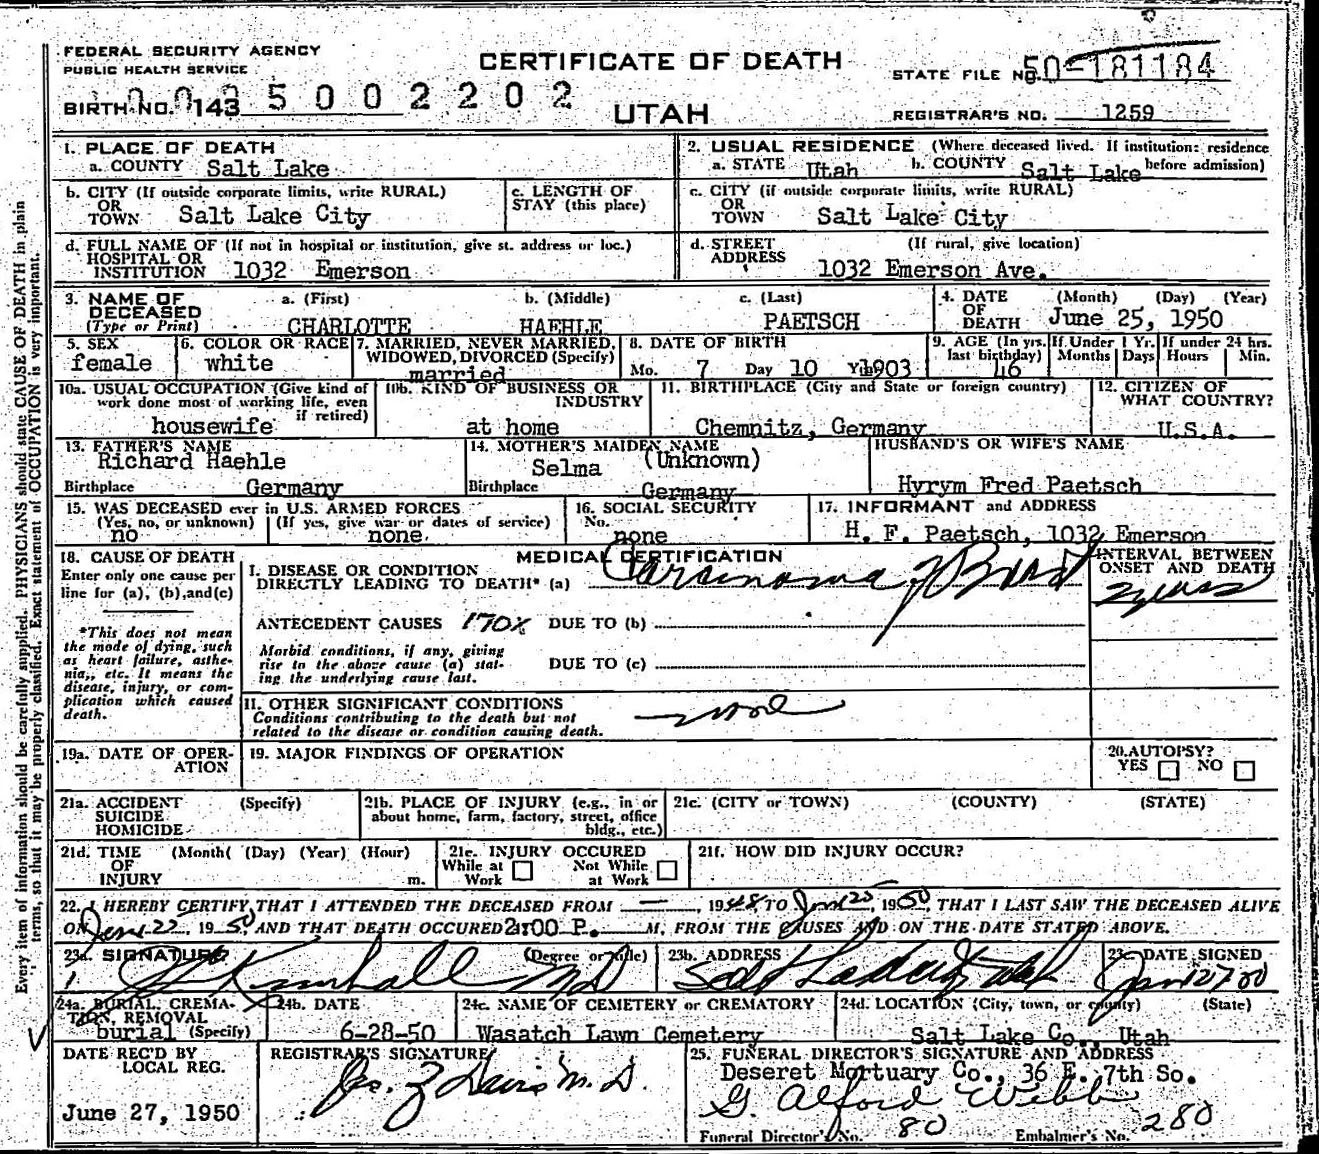 FEDERAL SECURITY AGENCY
PUBLIC HEALTH SERVICE
CERTIFICATE OF DEATH
UTAH
STATE FILE NO. 50-181184
BIRTH NO. 143 5002202
REGISTRAR'S NO. 1259
1. PLACE OF DEATH
a. COUNTY Salt Lake
2. USUAL RESIDENCE (Where deceased lived. If institution: residence before admission)
a. STATE Utah b. COUNTY Salt Lake
b. CITY (If outside corporate limits, write RURAL)
OR
TOWN Salt Lake City
c. LENGTH OF
STAY (this place)
c. CITY (if outside corporate limits, write RURAL)
OR
TOWN Salt Lake City
d. FULL NAME OF (If not in hospital or institution, give st. address or loc.)
HOSPITAL OR
INSTITUTION 1032 Emerson
d. STREET (If rural, give location)
ADDRESS 1032 Emerson Ave.
3. NAME OF
DECEASED
(Type or Print)
a. (First) b. (Middle) c. (Last)
CHARLOTTE HAEHLE PAETSCH
4. DATE (Month) (Day) (Year)
OF
DEATH June 25, 1950
5. SEX
female
6. COLOR OR RACE
white
7. MARRIED, NEVER MARRIED,
WIDOWED, DIVORCED (Specify)
married
8. DATE OF BIRTH
Mo. 7 Day 10 Yr. 1903
9. AGE (In yrs. last birthday) 46
If Under 1 Yr.
Months Days
If under 24 hrs.
Hours Min.
10a. USUAL OCCUPATION (Give kind of
work done most of working life, even
if retired)
housewife
10b. KIND OF BUSINESS OR
INDUSTRY
at home
11. BIRTHPLACE (City and State or foreign country)
Chemnitz, Germany
12. CITIZEN OF
WHAT COUNTRY?
U.S.A.
13. FATHER'S NAME
Richard Haehle
Birthplace Germany
14. MOTHER'S MAIDEN NAME
Selma (Unknown)
Birthplace Germany
HUSBAND'S OR WIFE'S NAME
Hyrym Fred Paetsch
15. WAS DECEASED ever in U.S. ARMED FORCES
(Yes, no, or unknown) (If yes, give war or dates of service)
no none
16. SOCIAL SECURITY
No.
none
17. INFORMANT and ADDRESS
H. F. Paetsch, 1032 Emerson
18. CAUSE OF DEATH
Enter only one cause per
line for (a), (b), and (c)
*This does not mean
the mode of dying, such
as heart failure, asthe-
nia, etc. It means the
disease, injury, or com-
plication which caused
death.
MEDICAL CERTIFICATION
I. DISEASE OR CONDITION
DIRECTLY LEADING TO DEATH* (a) Carcinoma of Breast
INTERVAL BETWEEN
ONSET AND DEATH
2 years
ANTECEDENT CAUSES 170X DUE TO (b)
Morbid conditions, if any, giving
rise to the above cause (a) stat-
ing the underlying cause last.
DUE TO (c)
II. OTHER SIGNIFICANT CONDITIONS
Conditions contributing to the death but not
related to the disease or condition causing death.
none
19a. DATE OF OPER-
ATION
19. MAJOR FINDINGS OF OPERATION
20. AUTOPSY?
YES NO
21a. ACCIDENT (Specify)
SUICIDE
HOMICIDE
21b. PLACE OF INJURY (e.g., in or
about home, farm, factory, street, office
bldg., etc.)
21c. (CITY or TOWN) (COUNTY) (STATE)
21d. TIME (Month( (Day) (Year) (Hour)
OF
INJURY m.
21e. INJURY OCCURED
While at Work Not While at Work
21f. HOW DID INJURY OCCUR?
22. I HEREBY CERTIFY THAT I ATTENDED THE DECEASED FROM —, 1948 TO June 25, 1950, THAT I LAST SAW THE DECEASED ALIVE
ON June 22, 1950 AND THAT DEATH OCCURED 2:00 P. M, FROM THE CAUSES AND ON THE DATE STATED ABOVE.
23a. SIGNATURE (Degree or title)
Kimball MD
23b. ADDRESS
Salt Lake City Utah
23c. DATE SIGNED
24a. BURIAL, CREMA-
TION, REMOVAL
burial (Specify)
24b. DATE
6-28-50
24c. NAME OF CEMETERY or CREMATORY
Wasatch Lawn Cemetery
24d. LOCATION (City, town, or county) (State)
Salt Lake Co., Utah
DATE REC'D BY
LOCAL REG.
June 27, 1950
REGISTRAR'S SIGNATURE
Jas. Z Davis M.D.
25. FUNERAL DIRECTOR'S SIGNATURE AND ADDRESS
Deseret Mortuary Co., 36 E. 7th So.
G. Alford Webb
Funeral Director's No. 80 Embalmer's No. 280
Every item of information should be carefully supplied. PHYSICIANS should state CAUSE OF DEATH in plain
terms, so that it may be properly classified. Exact statement of OCCUPATION is very important.